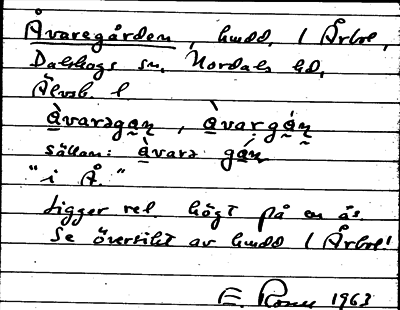 Åvaregården, hmdd. 1 Årbol,
Dalskogs sn. Nordals hd,
Älvsb. l
àvarəgan̥, àvargán̥
sällan: àvarə gán̥
"i Å."
Ligger rel. högt på en ås.
Se översikt av hmdd 1 Årbol!
E. 1963